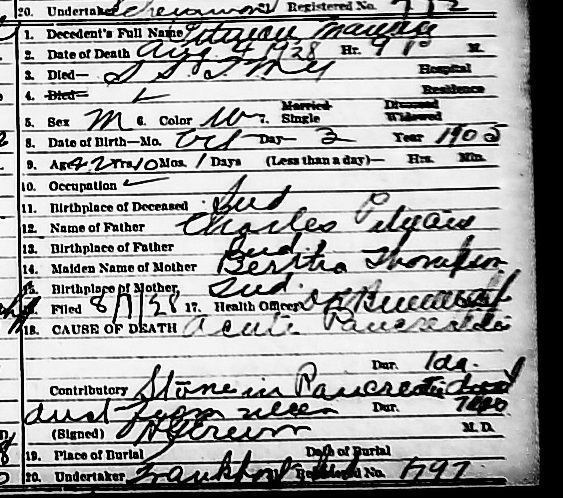 20. Undertaker Registered No. 792
1. Decedent's Full Name
2. Date of Death Aug. 4 1928 Hr. 9 P M.
3. Died— Hospital
4. Died— Residence
5. Sex M 6. Color W 7. Married Single Divorced Widowed
8. Date of Birth—Mo. Oct Day 3 Year 1905
9. Age Yrs. 10 Mos. 1 Days (Less than a day)— Hrs. Min.
10. Occupation
11. Birthplace of Deceased Ind
12. Name of Father Charles
13. Birthplace of Father Ind.
14. Maiden Name of Mother Bertha Thompson
15. Birthplace of Mother Ind.
Filed 8/7/28 17. Health Officer
18. CAUSE OF DEATH Acute Pancreatitis
Dur. 1 da.
Contributory Stone in Pancreatic duct
Dur.
(Signed) M. D.
19. Place of Burial Date of Burial
20. Undertaker Frankfort Ind Registered No. 1797